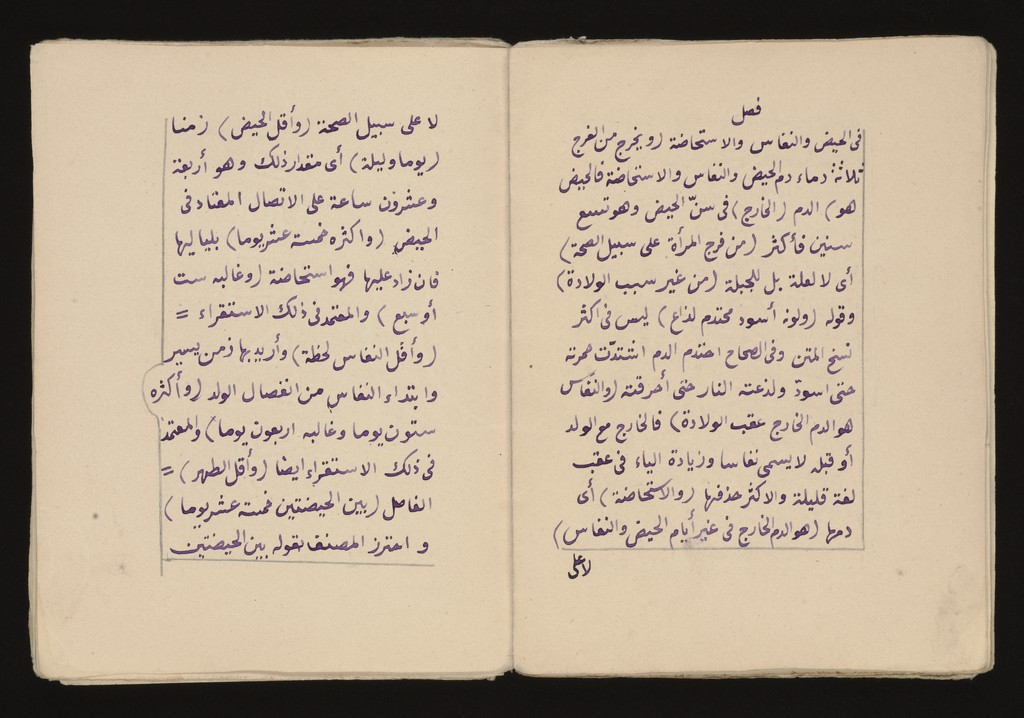 فصل
فى الحيض والنفاس والاستحاضة (ويخرج من الفرج
ثلاثة دماء دم الحيض والنفاس والاستحاضة فالحيض
هو) الدم (الخارج) فى سنّ الحيض وهو تسع
سنين فأكثر (من فرج المرأة على سبيل الصحة)
أى لا لعلة بل للجبلة (من غير سبب الولادة)
وقوله (ولونه أسود محتدم لذاع) ليس فى اكثر
نسخ المتن وفى الصحاح احتدم الدم اشتدّت حمرته
حتى اسودّ ولذعته النار حتى أحرقته (والنفاس
هو الدم الخارج عقب الولادة) فالخارج مع الولد
أو قبله لا يسمى نفاسا وزيادة الياء فى عقب
لغة قليلة والاكثر حذفها (والاستحاضة) أى
دمها (هو الدم الخارج فى غير أيام الحيض والنفاس)
لا على
لا على سبيل الصحة (وأقل الحيض) زمنا
(يوما وليلة) أى مقدار ذلك وهو أربعة
وعشرون ساعة على الاتصال المعتاد فى
الحيض (واكثره خمسة عشر يوما) بلياليها
فان زاد عليها فهو استحاضة (وغالبه ست
أو سبع) والمعتمد فى ذلك الاستقراء =
(وأقل النفاس لحظة) وأريد بها زمن يسير
وابتداء النفاس من انفصال الولد (وأكثره
ستون يوما وغالبه اربعون يوما) والمعتمد
فى ذلك الاستقراء ايضا (وأقل الطهر) =
الفاصل (بين الحيضتين خمسة عشر يوما)
و احترز المصنف بقوله بين الحيضتين